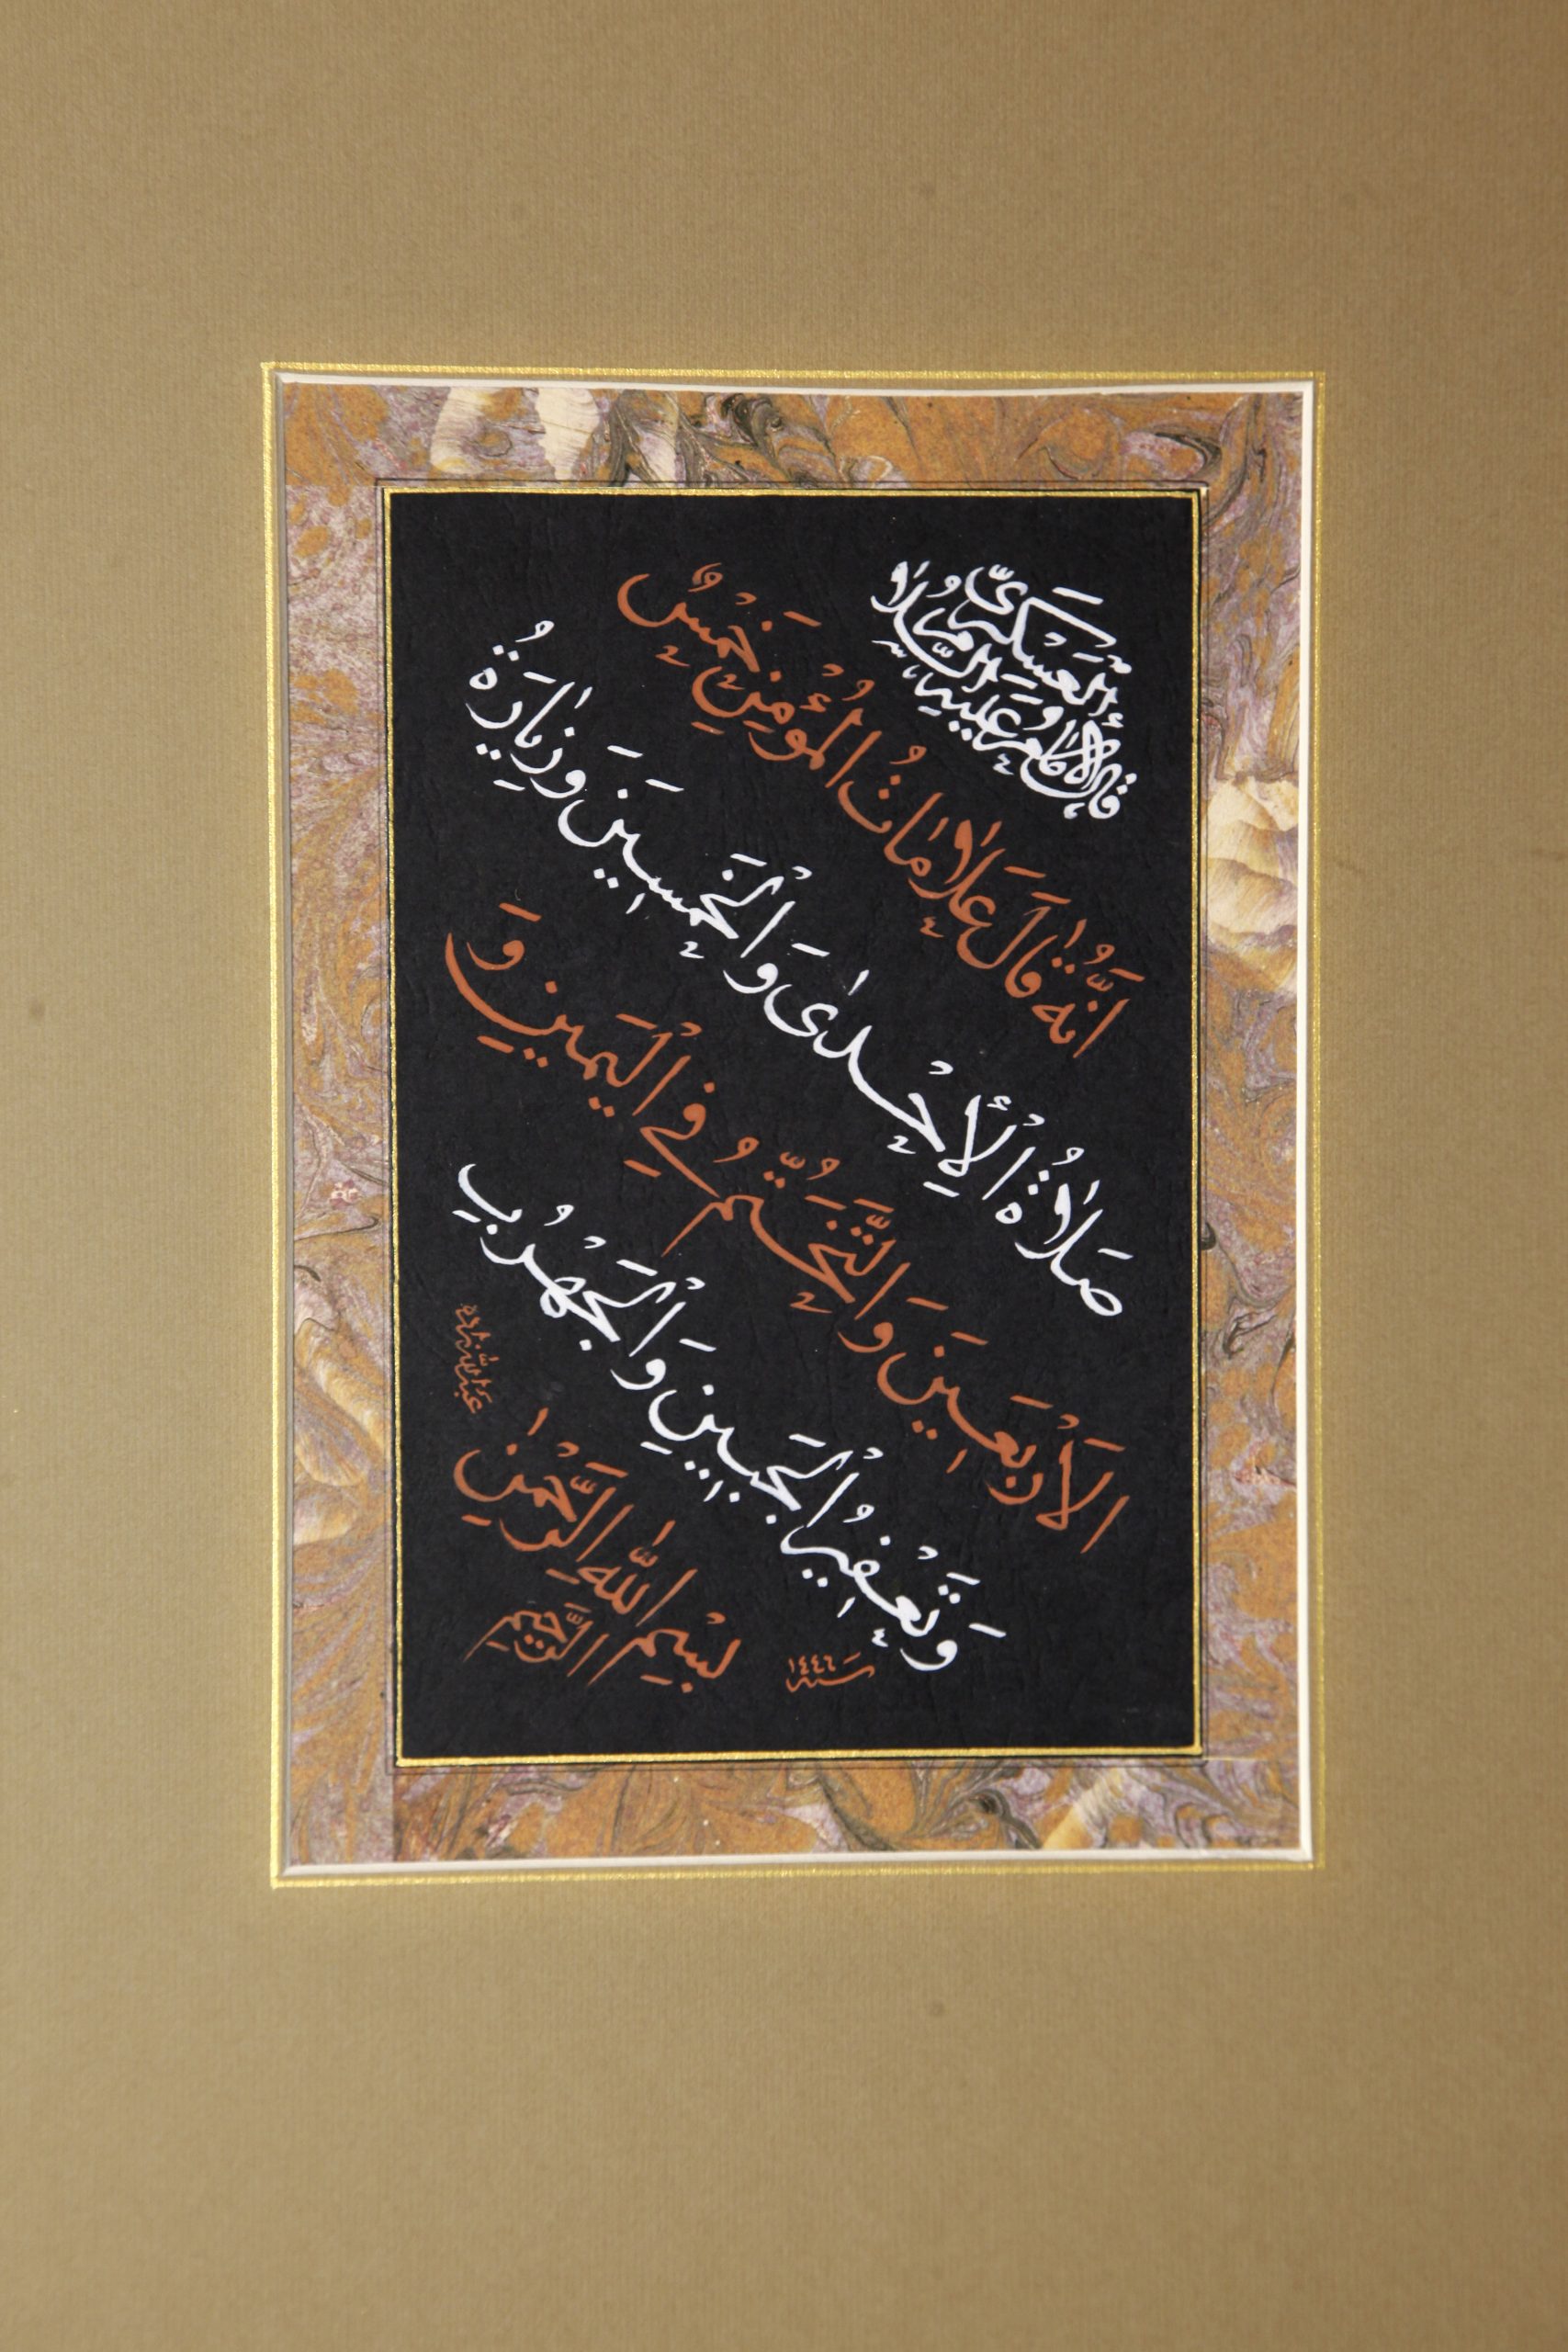 قَالَ الْإِمَامُ الْعَسْكَرِيُّ
عَلَيْهِ السَّلَامُ
اَنَّهُ قَالَ عَلَامَاتُ الْمُؤْمِنِ خَمْسٌ
صَلَاةُ الْأِحْدىٰ وَالْخَمسِينَ وَزِيَارَةُ
الْأَرْبَعِينَ وَالتَّخَتُّمُ فِي الْيَمِينِ وَ
وَتَعْفِيرُ الْجَبِينِ وَالْجَهْرُ بِ
بِسْمِ اللّٰهِ الرَّحْمٰنِ
الرَّحِيمِ
سنه ١٤٤٦